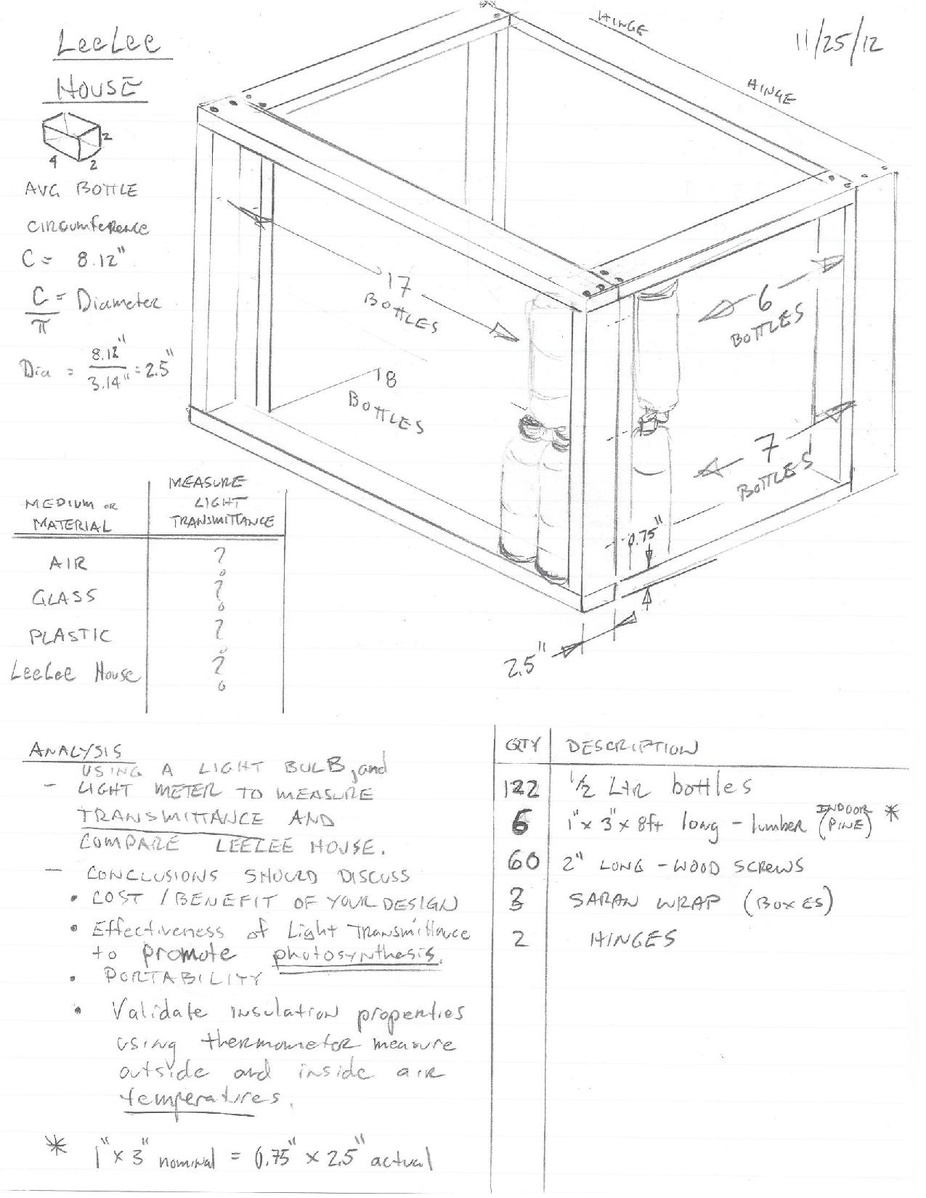 LeeLee
HOUSE
11/25/12
HINGE
HINGE
2
4 2
AVG BOTTLE
CIRCUMFERENCE
C = 8.12"
C/π = Diameter
Dia = 8.12"/3.14" = 2.5"
17
BOTTLES
18
BOTTLES
6
BOTTLES
7
BOTTLES
0.75"
2.5"
MEDIUM OR MATERIAL | MEASURE LIGHT TRANSMITTANCE
AIR ?
GLASS ?
PLASTIC ?
LeeLee House ?
ANALYSIS
- USING A LIGHT BULB, and
LIGHT METER TO MEASURE
TRANSMITTANCE AND
COMPARE LEELEE HOUSE.
- CONCLUSIONS SHOULD DISCUSS
• COST / BENEFIT OF YOUR DESIGN
• Effectiveness of Light Transmittance
to promote photosynthesis.
• PORTABILITY
• Validate insulation properties
using thermometer measure
outside and inside air
temperatures.
* 1" x 3" nominal = 0.75" x 2.5" actual
QTY DESCRIPTION
122 1/2 Ltr bottles
6 1" x 3" x 8ft long - lumber (INDOOR PINE) *
60 2" LONG - WOOD SCREWS
3 SARAN WRAP (BOXES)
2 HINGES